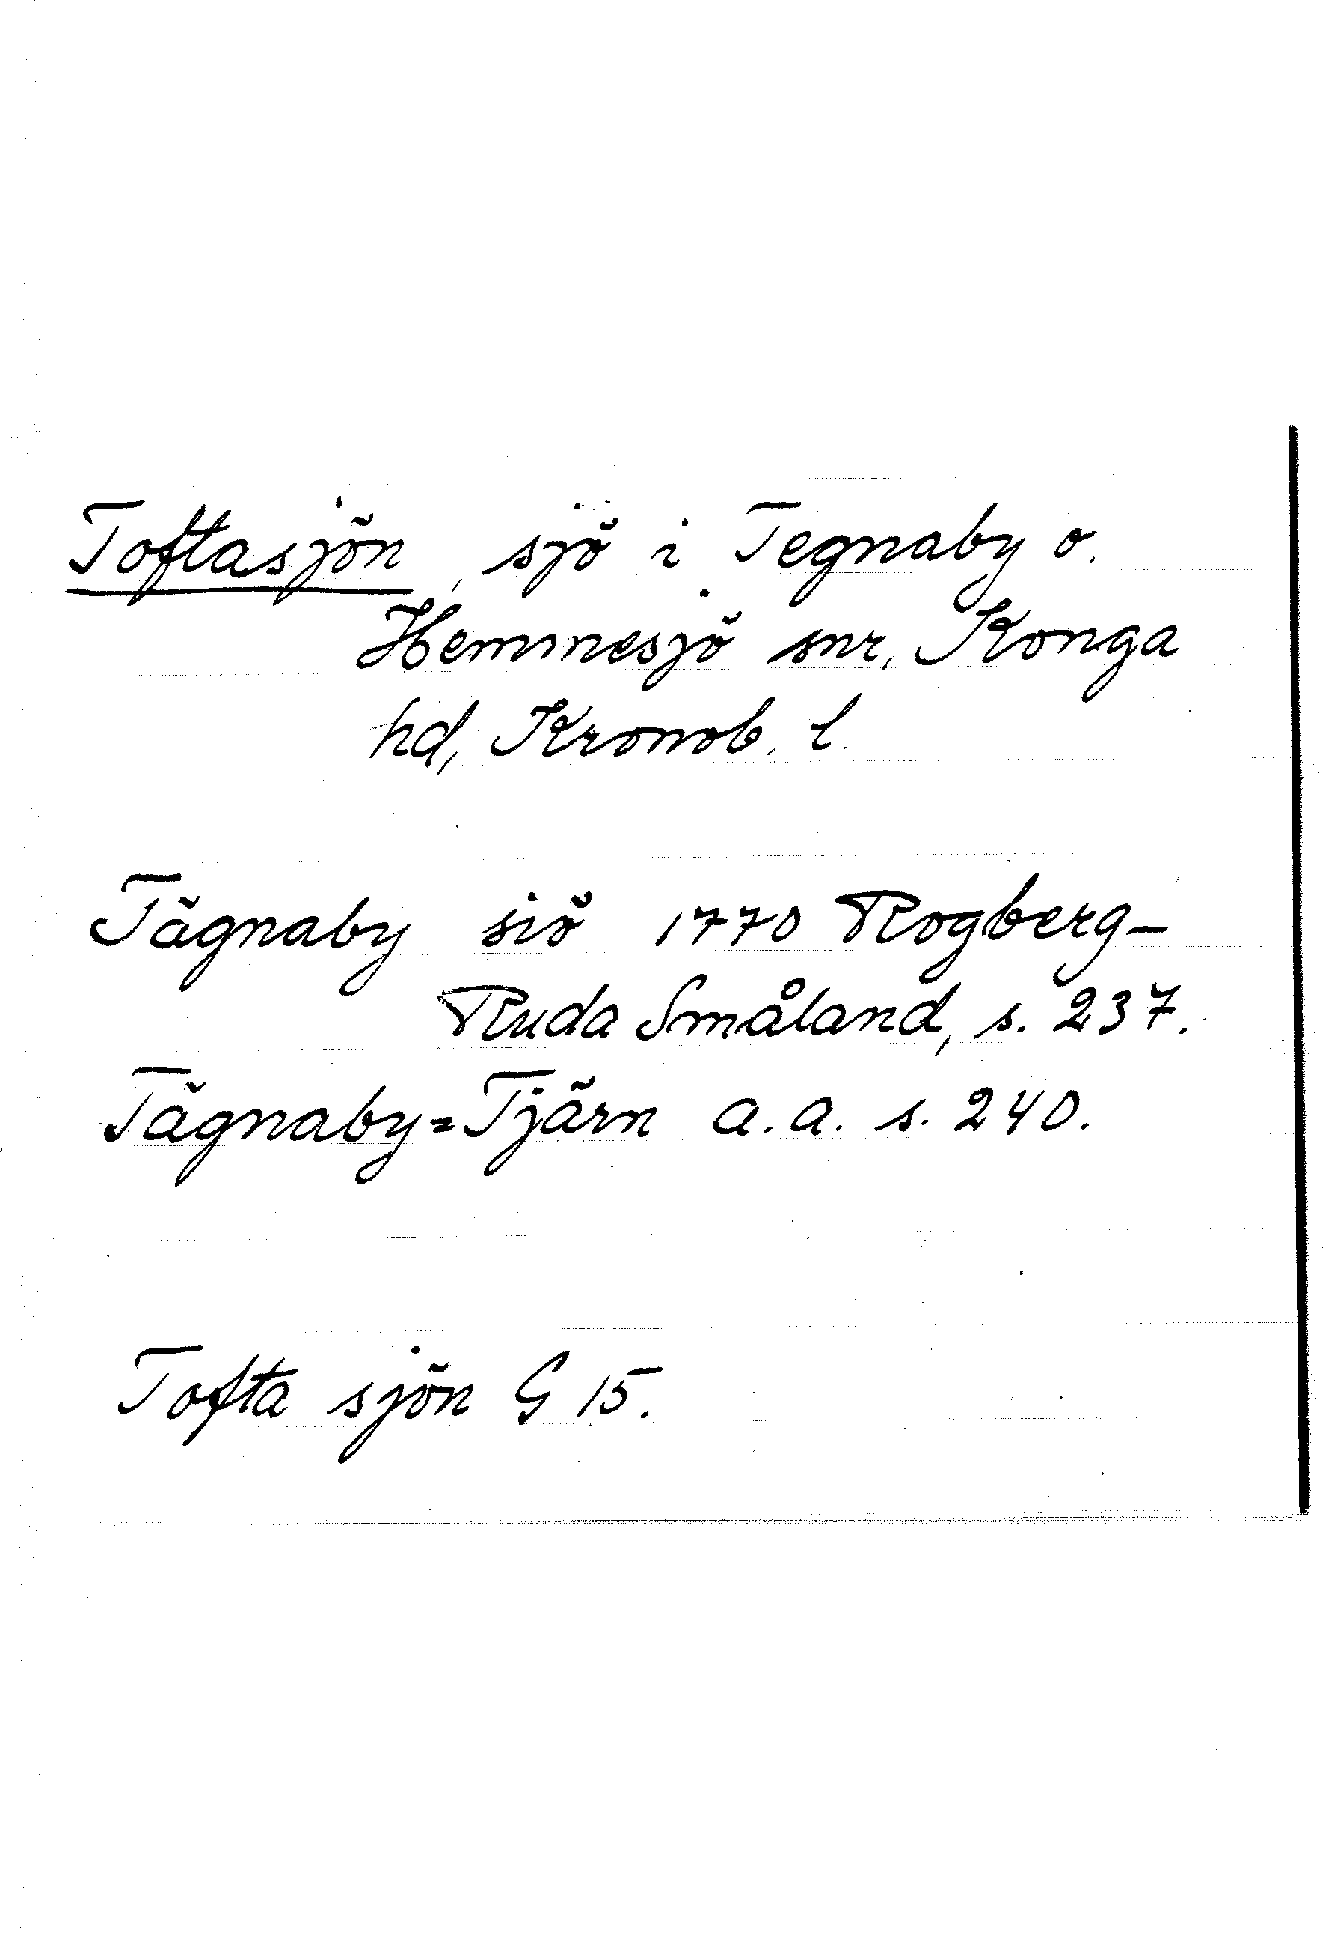 Toftasjön, sjö i Tegnaby o.
Hemmesjö snr, Konga
hd, Kronob. l.
Tägnaby siö 1770 Rogberg-
Ruda Småland, s. 237.
Tägnaby=Tjärn a.a. s. 240.
Tofta sjön G 15.